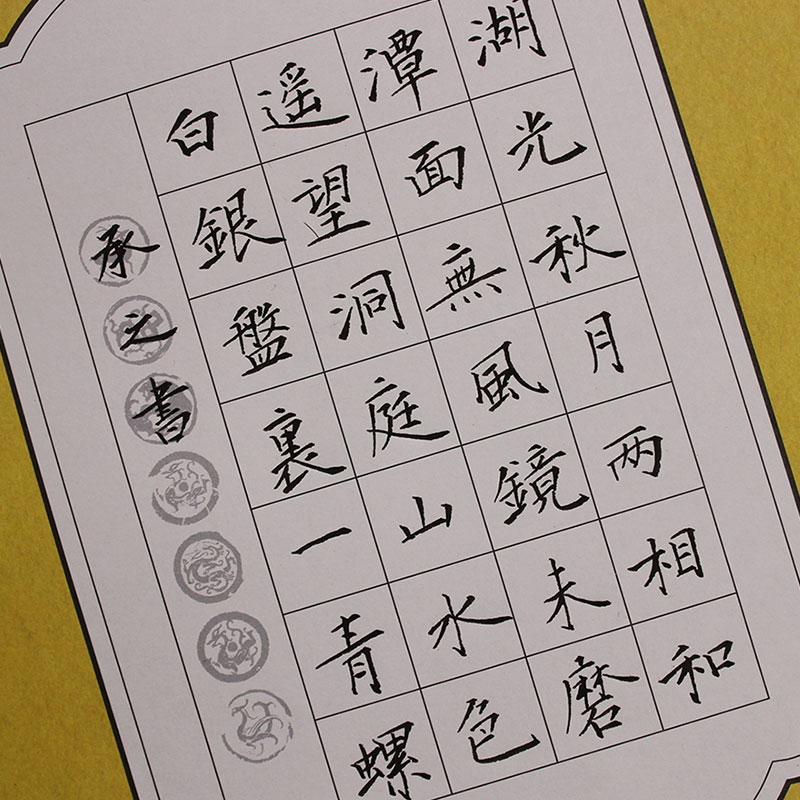 湖光秋月两相和
潭面無風鏡未磨
遥望洞庭山水色
白銀盤裏一青螺
承之書